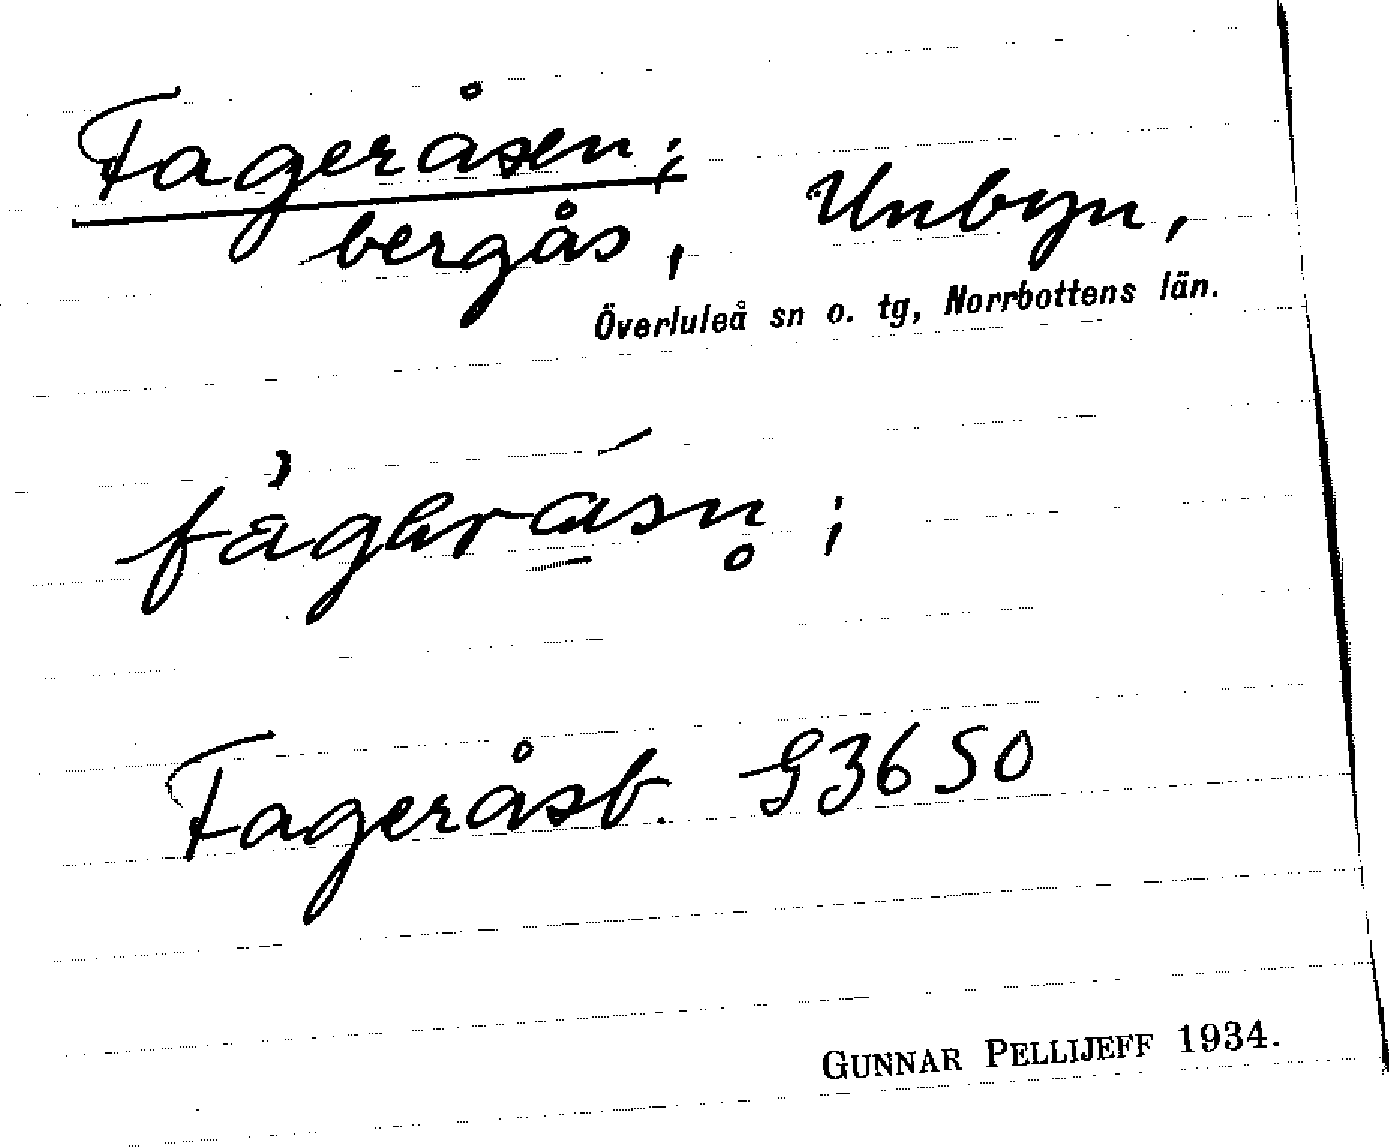 Fageråsen;
bergås, Unbyn,
Överluleå sn o. tg, Norrbottens län.
Fageråsb. G3650
GUNNAR PELLIJEFF 1934.